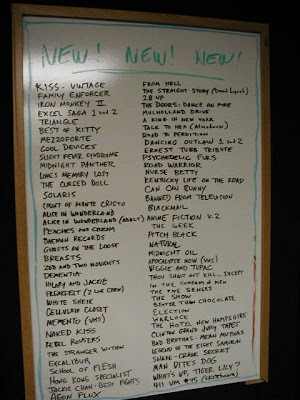 NEW! NEW! NEW!
KISS - VINTAGE
FAMILY ENFORCER
IRON MONKEY II
EXCEL SAGA 1 and 2
TRIANGLE
BEST OF KITTY
MEZZOFORTE
COOL DEVICES
SILENT FEVER SYNDROME
MIDNIGHT PANTHER
LOVES MEMORY LOST
THE CURSED DOLL
SOLARIS
COUNT OF MONTE CRISTO
ALICE IN WONDERLAND
ALICE IN WONDERLAND (ADULT)
PEACHES AND CREAM
DAEMON RECORDS
GUESTS ON THE LOOSE
BREASTS
ZED AND TWO NOUGHTS
DEMENTIA
HILARY AND JACKIE
FREAKFEST (2 LIVE CREW)
WHITE SHEIK
CELLULOID CLOSET
MEMENTO (VHS)
NAKED KISS
REBEL ROUSERS
THE STRANGER WITHIN
EXCALIBUR
SCHOOL OF FLESH
HONG KONG SPECIALIST
JACKIE CHAN - BEST FIGHTS
AEON FLUX
FROM HELL
THE STRAIGHT STORY (David Lynch)
28 UP
THE DOORS: DANCE ON FIRE
MULHOLLAND DRIVE
A KING IN NEW YORK
TALK TO HER (Almodovar)
ROAD TO PERDITION
DANCING OUTLAW 1 and 2
ERNEST TUBB TRIBUTE
PSYCHEDELIC FURS
ROAD WARRIOR
NURSE BETTY
KENTUCKY LIFE ON THE ROAD
CAN CAN BUNNY
BANNED FROM TELEVISION
BLACKMAIL
ANIME FICTION V.2
THE GEEK
PITCH BLACK
NATURAL
MIDNIGHT OIL
APOCALYPSE NOW (VHS)
BIGGIE AND TUPAC
THOU SHALT NOT KILL... EXCEPT
IN THE COMPANY OF MEN
THE FIVE SENSES
THE SHOW
BETTER THAN CHOCOLATE
ELECTION
WARLOCK
THE HOTEL NEW HAMPSHIRE
CLINTON GRAND JURY TAPES
BAD BROTHAS - MEAN MUTHAS
LEGEND OF THE EIGHT SAMURAI
SNAKE - CRANE SECRET
MAN BITES DOG
WHAT'S UP, TIGER LILY?